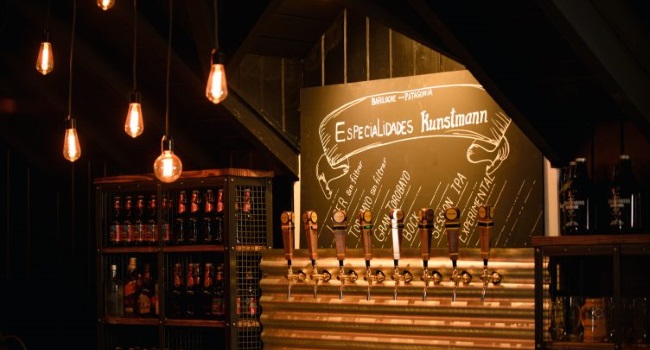 BARILOCHE — PATAGONIA
ESPECIALIDADES Kunstmann
LAGER sin filtrar
TOROBAYO sin filtrar
GRAN TOROBAYO
BOCK
SESSION IPA
EXPERIMENTAL